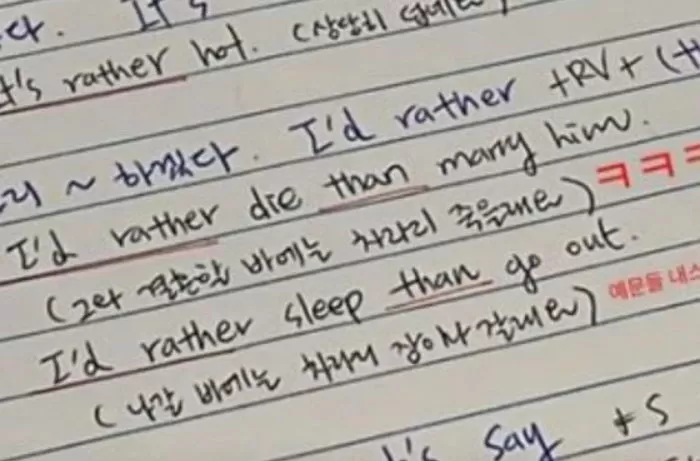 다. It's
It's rather hot. (상당히 덥네요)
~ 하겠다. I'd rather +RV+ (th
I'd rather die than marry him.
(그와 결혼할 바에는 차라리 죽을래요) ㅋㅋㅋ
I'd rather sleep than go out.
(나갈 바에는 차라리 잠이나 잘래요) 예문들 내스
say + S